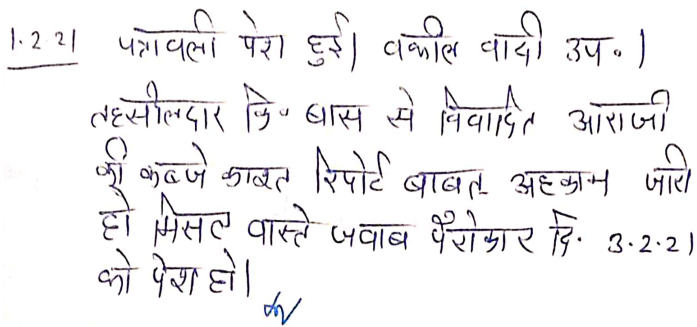 1.2.21 पत्रावली पेश हुई। वकील वादी उप॰।
तहसीलदार कि॰ बास से विवादित आराजी
की कब्जे काश्त रिपोर्ट बाबत अहकाम जारी
हो मिसल वास्ते जवाब पैरोकार दि. 3.2.21
को पेश हो।